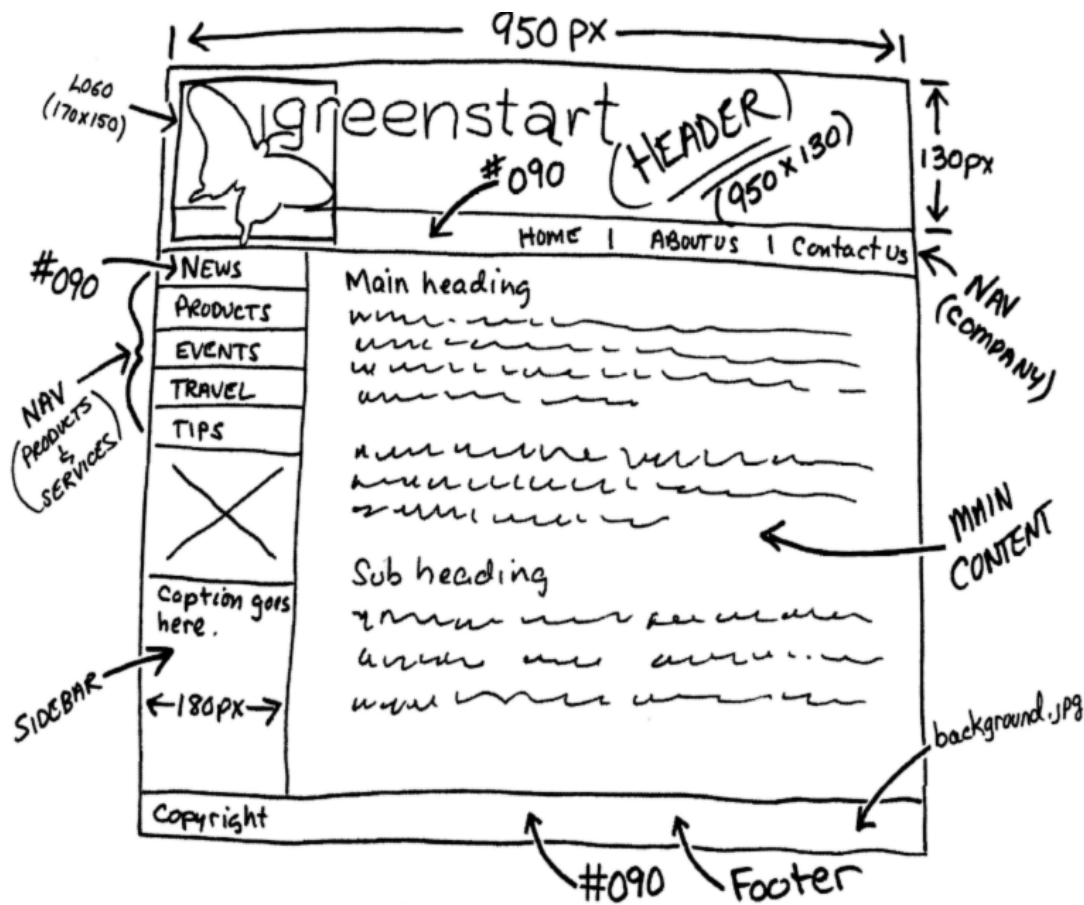 950 px
LOGO
(170x150)
greenstart
(HEADER)
(950 x 130)
130px
#090
HOME | ABOUT US | Contact Us
NAV
(COMPANY)
#090
NEWS
PRODUCTS
EVENTS
TRAVEL
TIPS
NAV
(PRODUCTS
&
SERVICES)
Main heading
MAIN
CONTENT
Sub heading
Caption goes
here.
SIDEBAR
180px
background.jpg
Copyright
#090
Footer